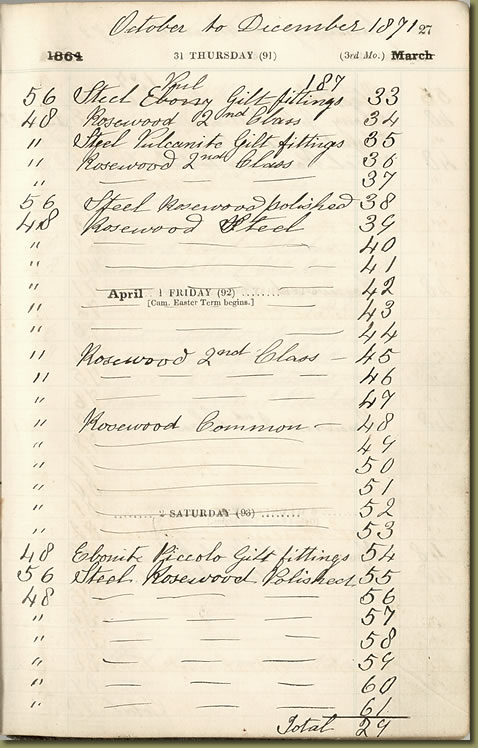 October to December 1871 27
1864 31 THURSDAY (91) (3rd Mo.) March
187
56 Steel Ebony Gilt fittings 33
48 Rosewood 2nd Class 34
" Steel Vulcanite Gilt fittings 35
" Rosewood 2nd Class 36
" — — — 37
56 Steel Rosewood polished 38
48 Rosewood Steel 39
" — — — 40
" — — — 41
" April 1 FRIDAY (92) ........ 42
" [Cam. Easter Term begins.] 43
" — — — 44
" Rosewood 2nd Class — 45
" — — — 46
" — — — 47
" Rosewood Common — 48
" — 49
" — 50
" — 51
" ........ 2 SATURDAY (93) ........ 52
" — 53
48 Ebonite Piccolo Gilt fittings 54
56 Steel Rosewood Polished 55
48 — — — 56
" — — — 57
" — — — 58
" — — — 59
" — — — 60
" — — — 61
Total 29